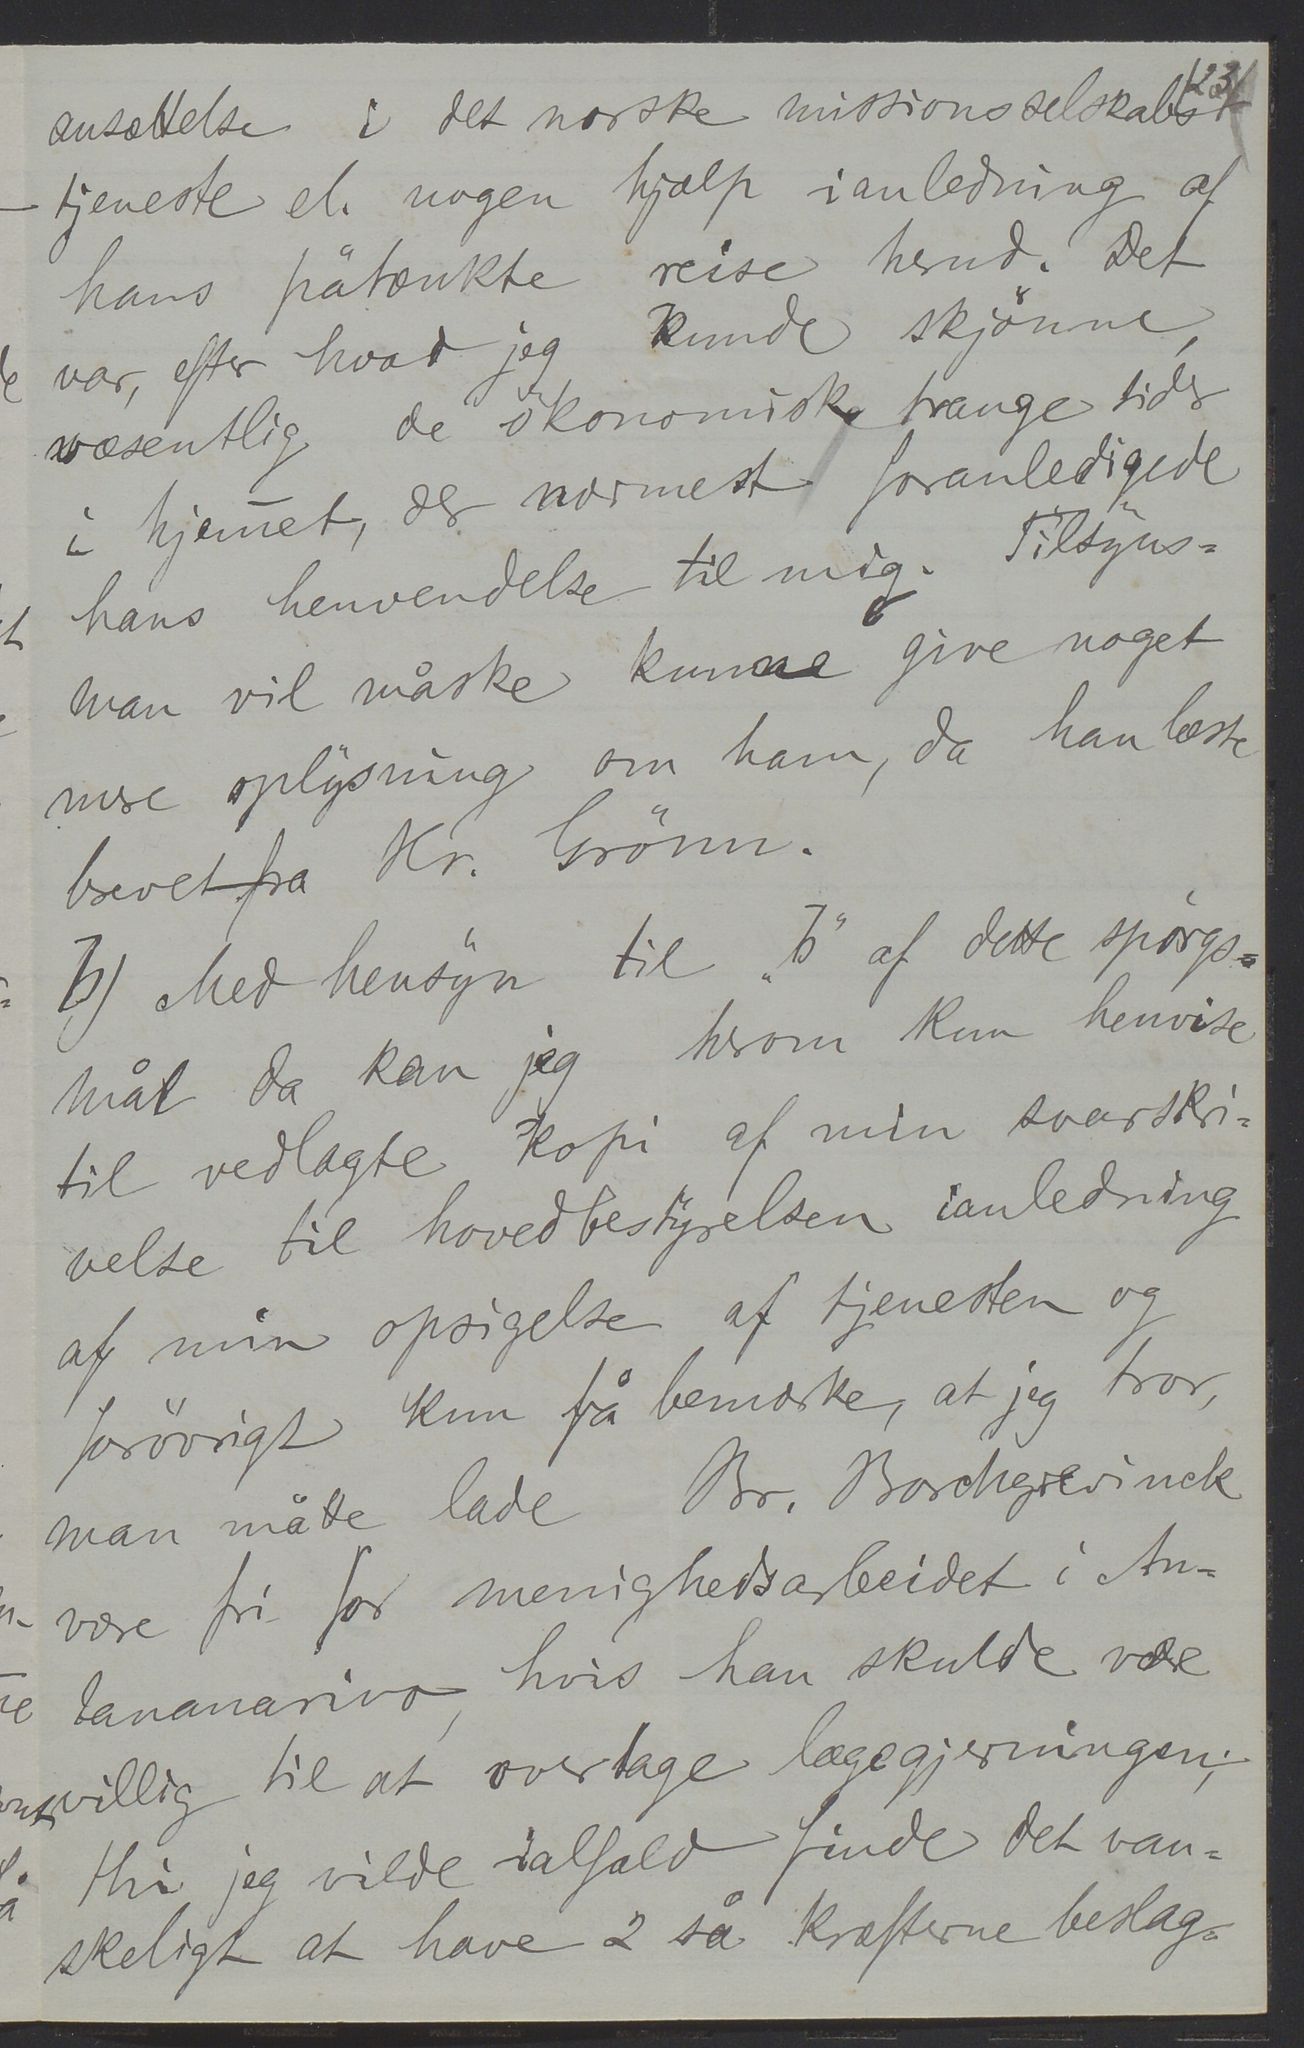 123
ansættelse i det norske missionsselskabs
tjeneste el. nogen hjælp ianledning af
hans påtænkte reise herud. Det
var, efter hvad jeg kunde skjönne,
væsentlig de ökonomiske trange tider
i hjem̅et, der nærmest foranledigede
hans henvendelse til mig. Tilsÿns-
man vil måske kunne give noget
mere oplÿsning om ham, da han læste
brevet fra Kr. Grönn.
b) Med hensÿn til „b“ af dette spörgs-
mål da kan jeg herom kun henvise
til vedlagte kopi af min svarskri-
velse til hovedbestÿrelsen ianledning
af min opsigelse af tjenesten og
forövrigt kun få bemærke, at jeg tror,
man måtte lade Br. Borchgrevinck
være fri for menighedsarbeidet i An-
tananarivo, hvis han skulde være
villig til at overtage lægegjerningen;
thi jeg vilde ialfald finde det van-
skeligt at have 2 så kræfterne beslag-